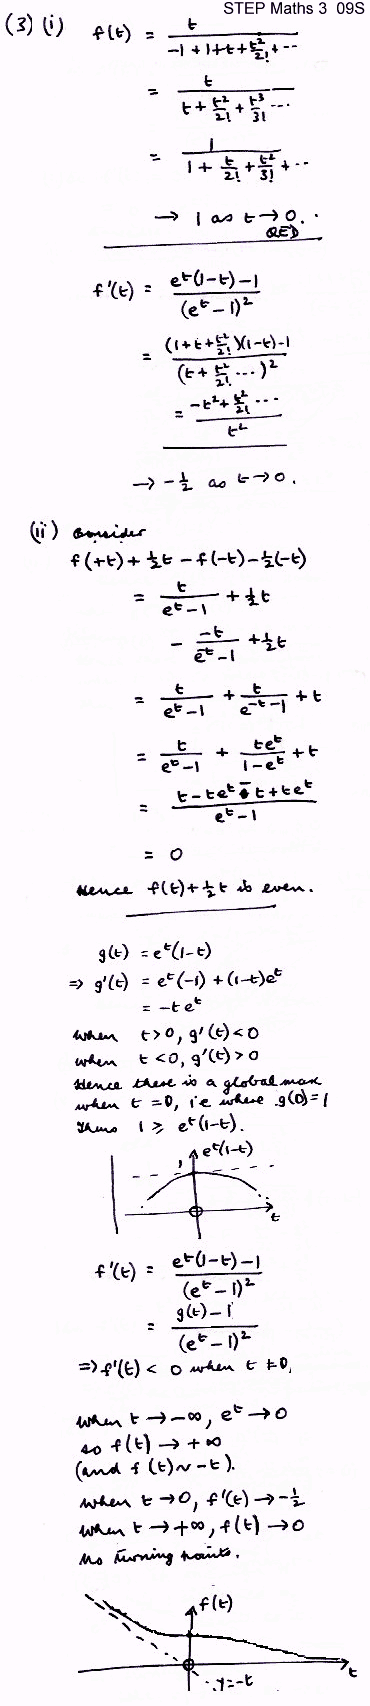 STEP Maths 3 09S
(3) (i) f(t) = t / (-1 + 1 + t + t²/2! + ...)
= t / (t + t²/2! + t³/3! ...)
= 1 / (1 + t/2! + t²/3! + ...)
→ 1 as t → 0.
QED
f'(t) = (eᵗ(1-t) - 1) / (eᵗ - 1)²
= ((1 + t + t²/2!)(1-t) - 1) / (t + t²/2! ...)²
= (-t² + t²/2! ...) / t²
→ -½ as t → 0.
(ii) Consider
f(+t) + ½t - f(-t) - ½(-t)
= t / (eᵗ - 1) + ½t
- (-t) / (e⁻ᵗ - 1) + ½t
= t / (eᵗ - 1) + t / (e⁻ᵗ - 1) + t
= t / (eᵗ - 1) + teᵗ / (1 - eᵗ) + t
= (t - teᵗ - t + teᵗ) / (eᵗ - 1)
= 0
Hence f(t) + ½t is even.
g(t) = eᵗ(1-t)
⇒ g'(t) = eᵗ(-1) + (1-t)eᵗ
= -teᵗ
When t > 0, g'(t) < 0
when t < 0, g'(t) > 0
Hence there is a global max
when t = 0, i.e where g(0) = 1
Thus 1 ⩾ eᵗ(1-t).
1 eᵗ(1-t)
t
f'(t) = (eᵗ(1-t) - 1) / (eᵗ - 1)²
= (g(t) - 1) / (eᵗ - 1)²
⇒ f'(t) < 0 when t ≠ 0,
When t → -∞, eᵗ → 0
so f(t) → +∞
(and f(t) ~ -t).
when t → 0, f'(t) → -½
when t → +∞, f(t) → 0
No turning points.
f(t)
t
y = -t